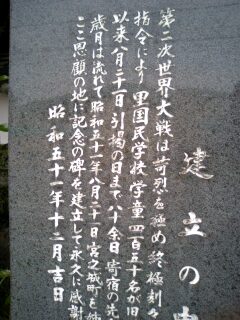 建立の
第二次世界大戦は苛烈を極め終極刻々
指令により里国民学校学童四百五十名が旧
以来八月二十一日引揚の日まで八十余日寄宿の先
歳月は流れて昭和五十一年八月二十日宮之城町を姉
ここ思顧の地に記念の碑を建立して永久に感謝
昭和五十一年十二月吉日